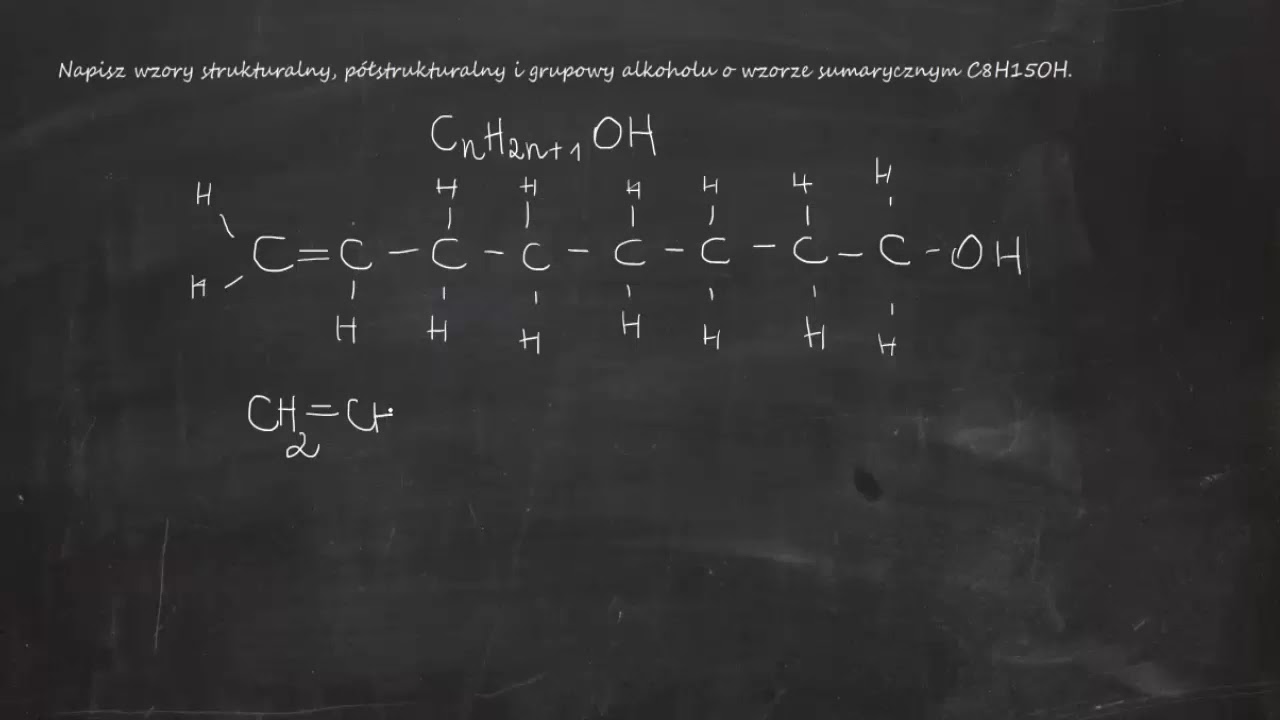 Napisz wzory strukturalny, półstrukturalny i grupowy alkoholu o wzorze sumarycznym C8H15OH.
CnH2n+1OH
H H H H H H H
C=C-C-C-C-C-C-C-OH
H
H H H H H H H
CH2=C